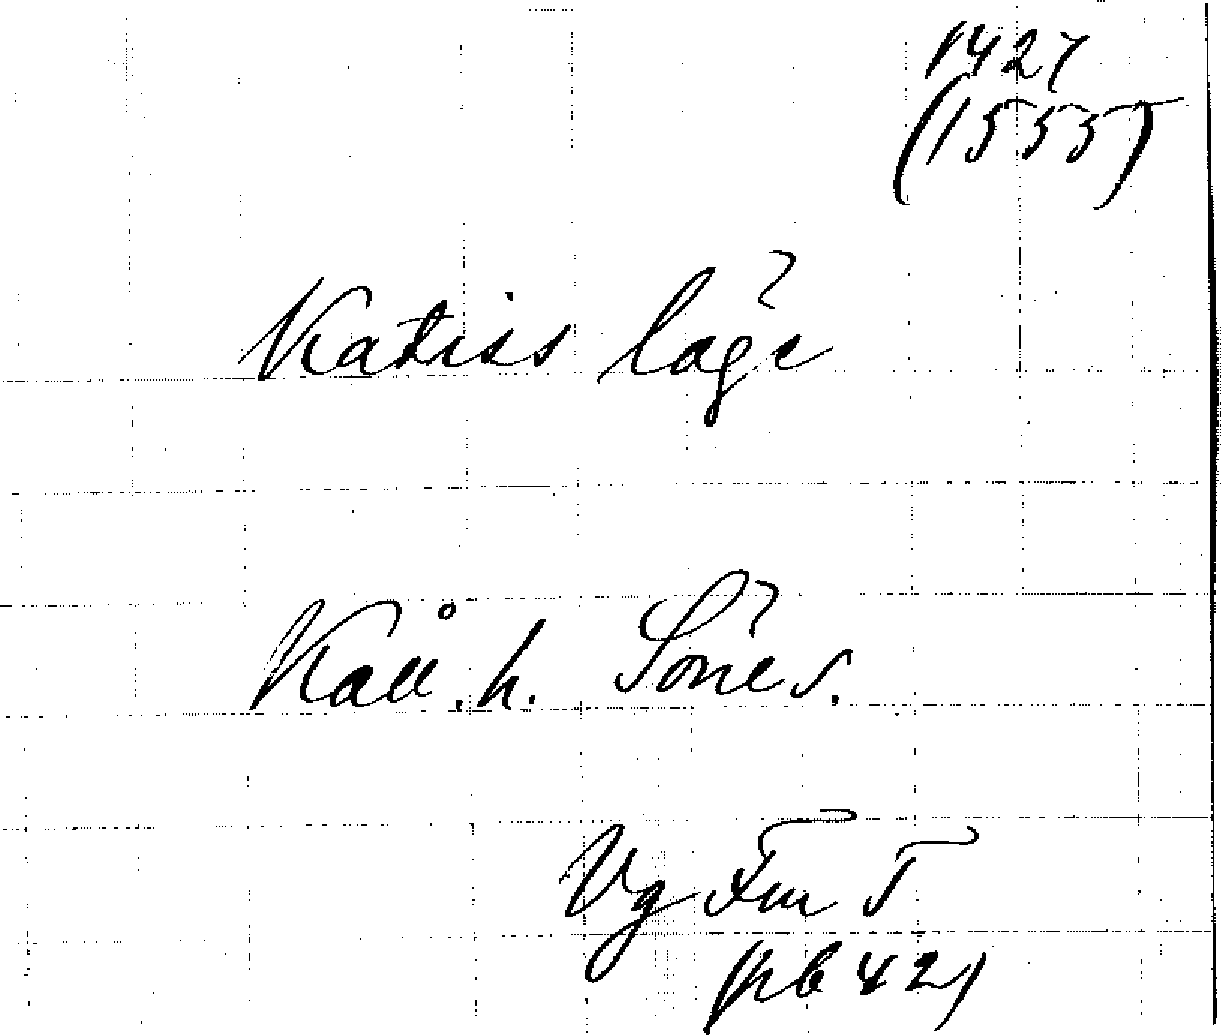 1427
(1555)
Katiss lage
Kall. h. Sönes.
Vg Fm T
(pb 42)